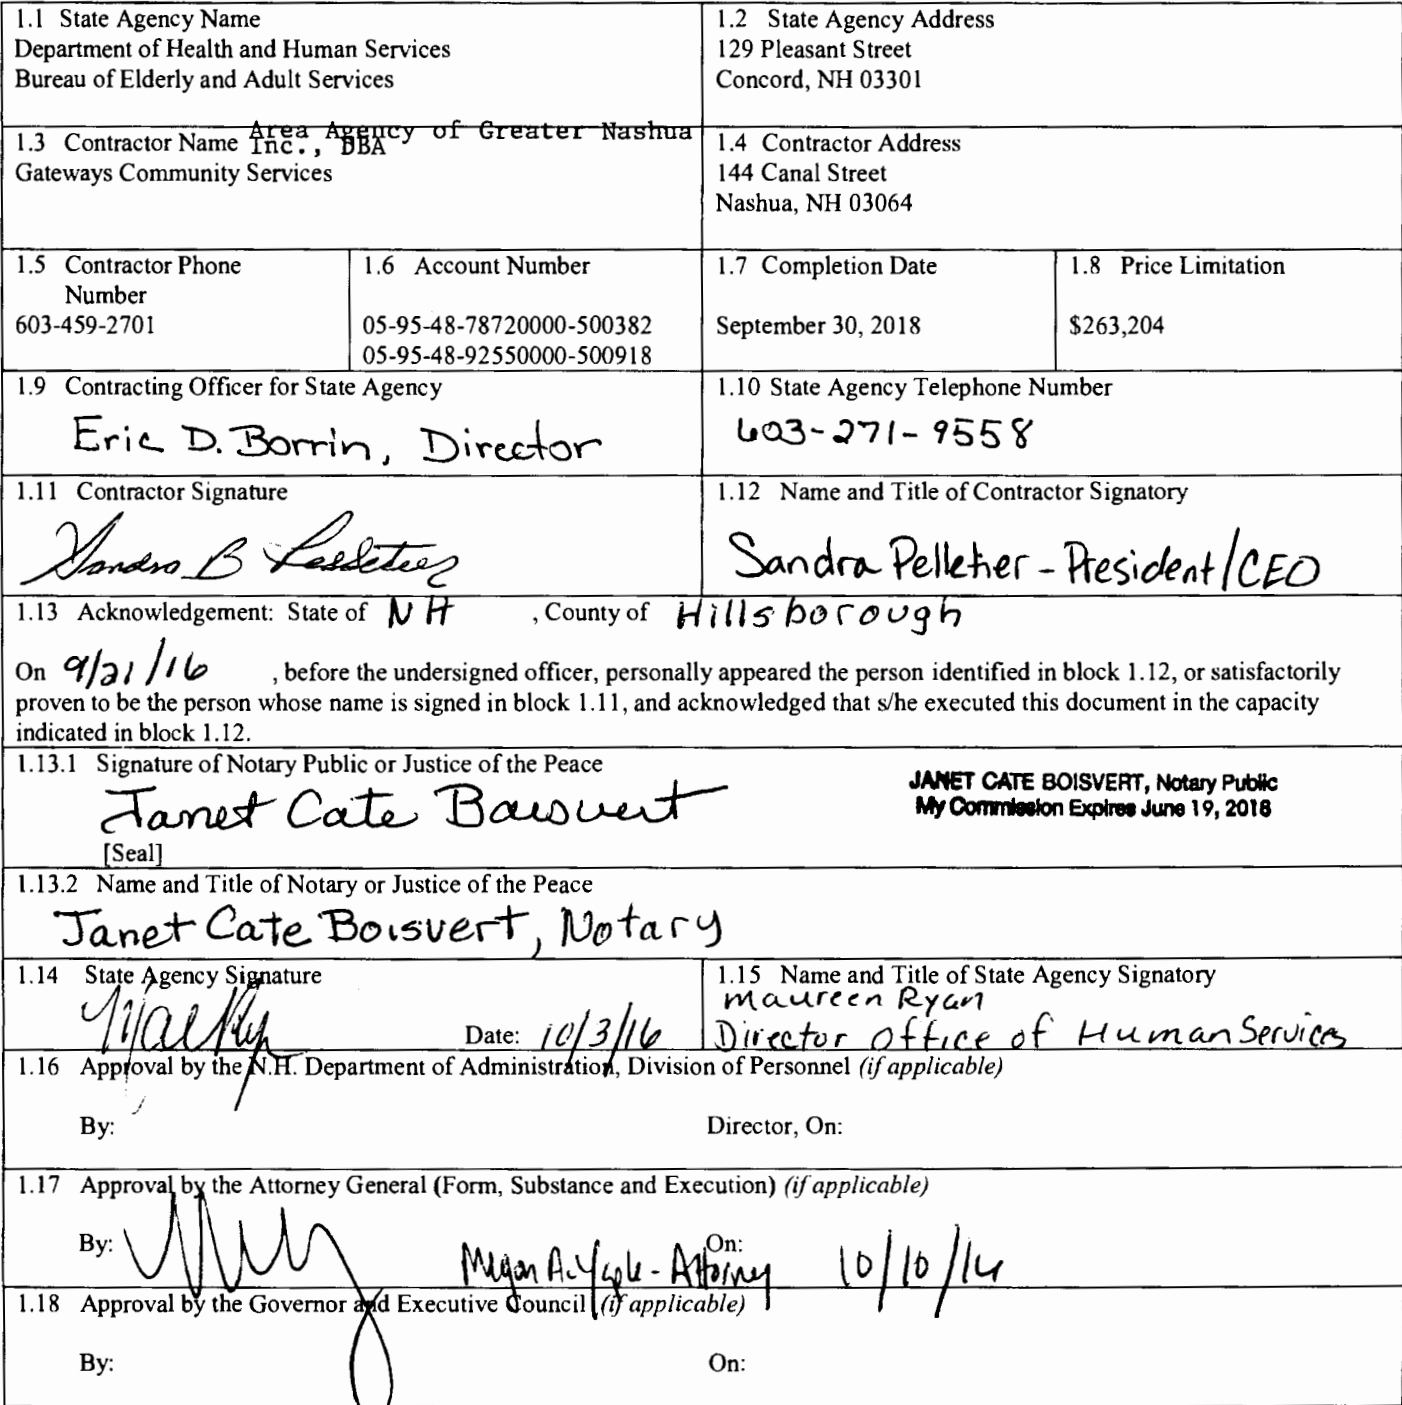 1.1 State Agency Name
Department of Health and Human Services
Bureau of Elderly and Adult Services
1.2 State Agency Address
129 Pleasant Street
Concord, NH 03301
1.3 Contractor Name Area Agency of Greater Nashua
Inc., DBA
Gateways Community Services
1.4 Contractor Address
144 Canal Street
Nashua, NH 03064
1.5 Contractor Phone
Number
603-459-2701
1.6 Account Number
05-95-48-78720000-500382
05-95-48-92550000-500918
1.7 Completion Date
September 30, 2018
1.8 Price Limitation
$263,204
1.9 Contracting Officer for State Agency
Eric D. Borrin, Director
1.10 State Agency Telephone Number
603-271-9558
1.11 Contractor Signature
Sandra B Pelletier
1.12 Name and Title of Contractor Signatory
Sandra Pelletier - President/CEO
1.13 Acknowledgement: State of NH , County of Hillsborough
On 9/21/16 , before the undersigned officer, personally appeared the person identified in block 1.12, or satisfactorily
proven to be the person whose name is signed in block 1.11, and acknowledged that s/he executed this document in the capacity
indicated in block 1.12.
1.13.1 Signature of Notary Public or Justice of the Peace
Janet Cate Boisvert
[Seal]
JANET CATE BOISVERT, Notary Public
My Commission Expires June 19, 2018
1.13.2 Name and Title of Notary or Justice of the Peace
Janet Cate Boisvert, Notary
1.14 State Agency Signature
Date: 10/3/16
1.15 Name and Title of State Agency Signatory
Maureen Ryan
Director Office of Human Services
1.16 Approval by the N.H. Department of Administration, Division of Personnel (if applicable)
By:
Director, On:
1.17 Approval by the Attorney General (Form, Substance and Execution) (if applicable)
By: Megan A. Yaple - Attorney On: 10/10/16
1.18 Approval by the Governor and Executive Council (if applicable)
By:
On: